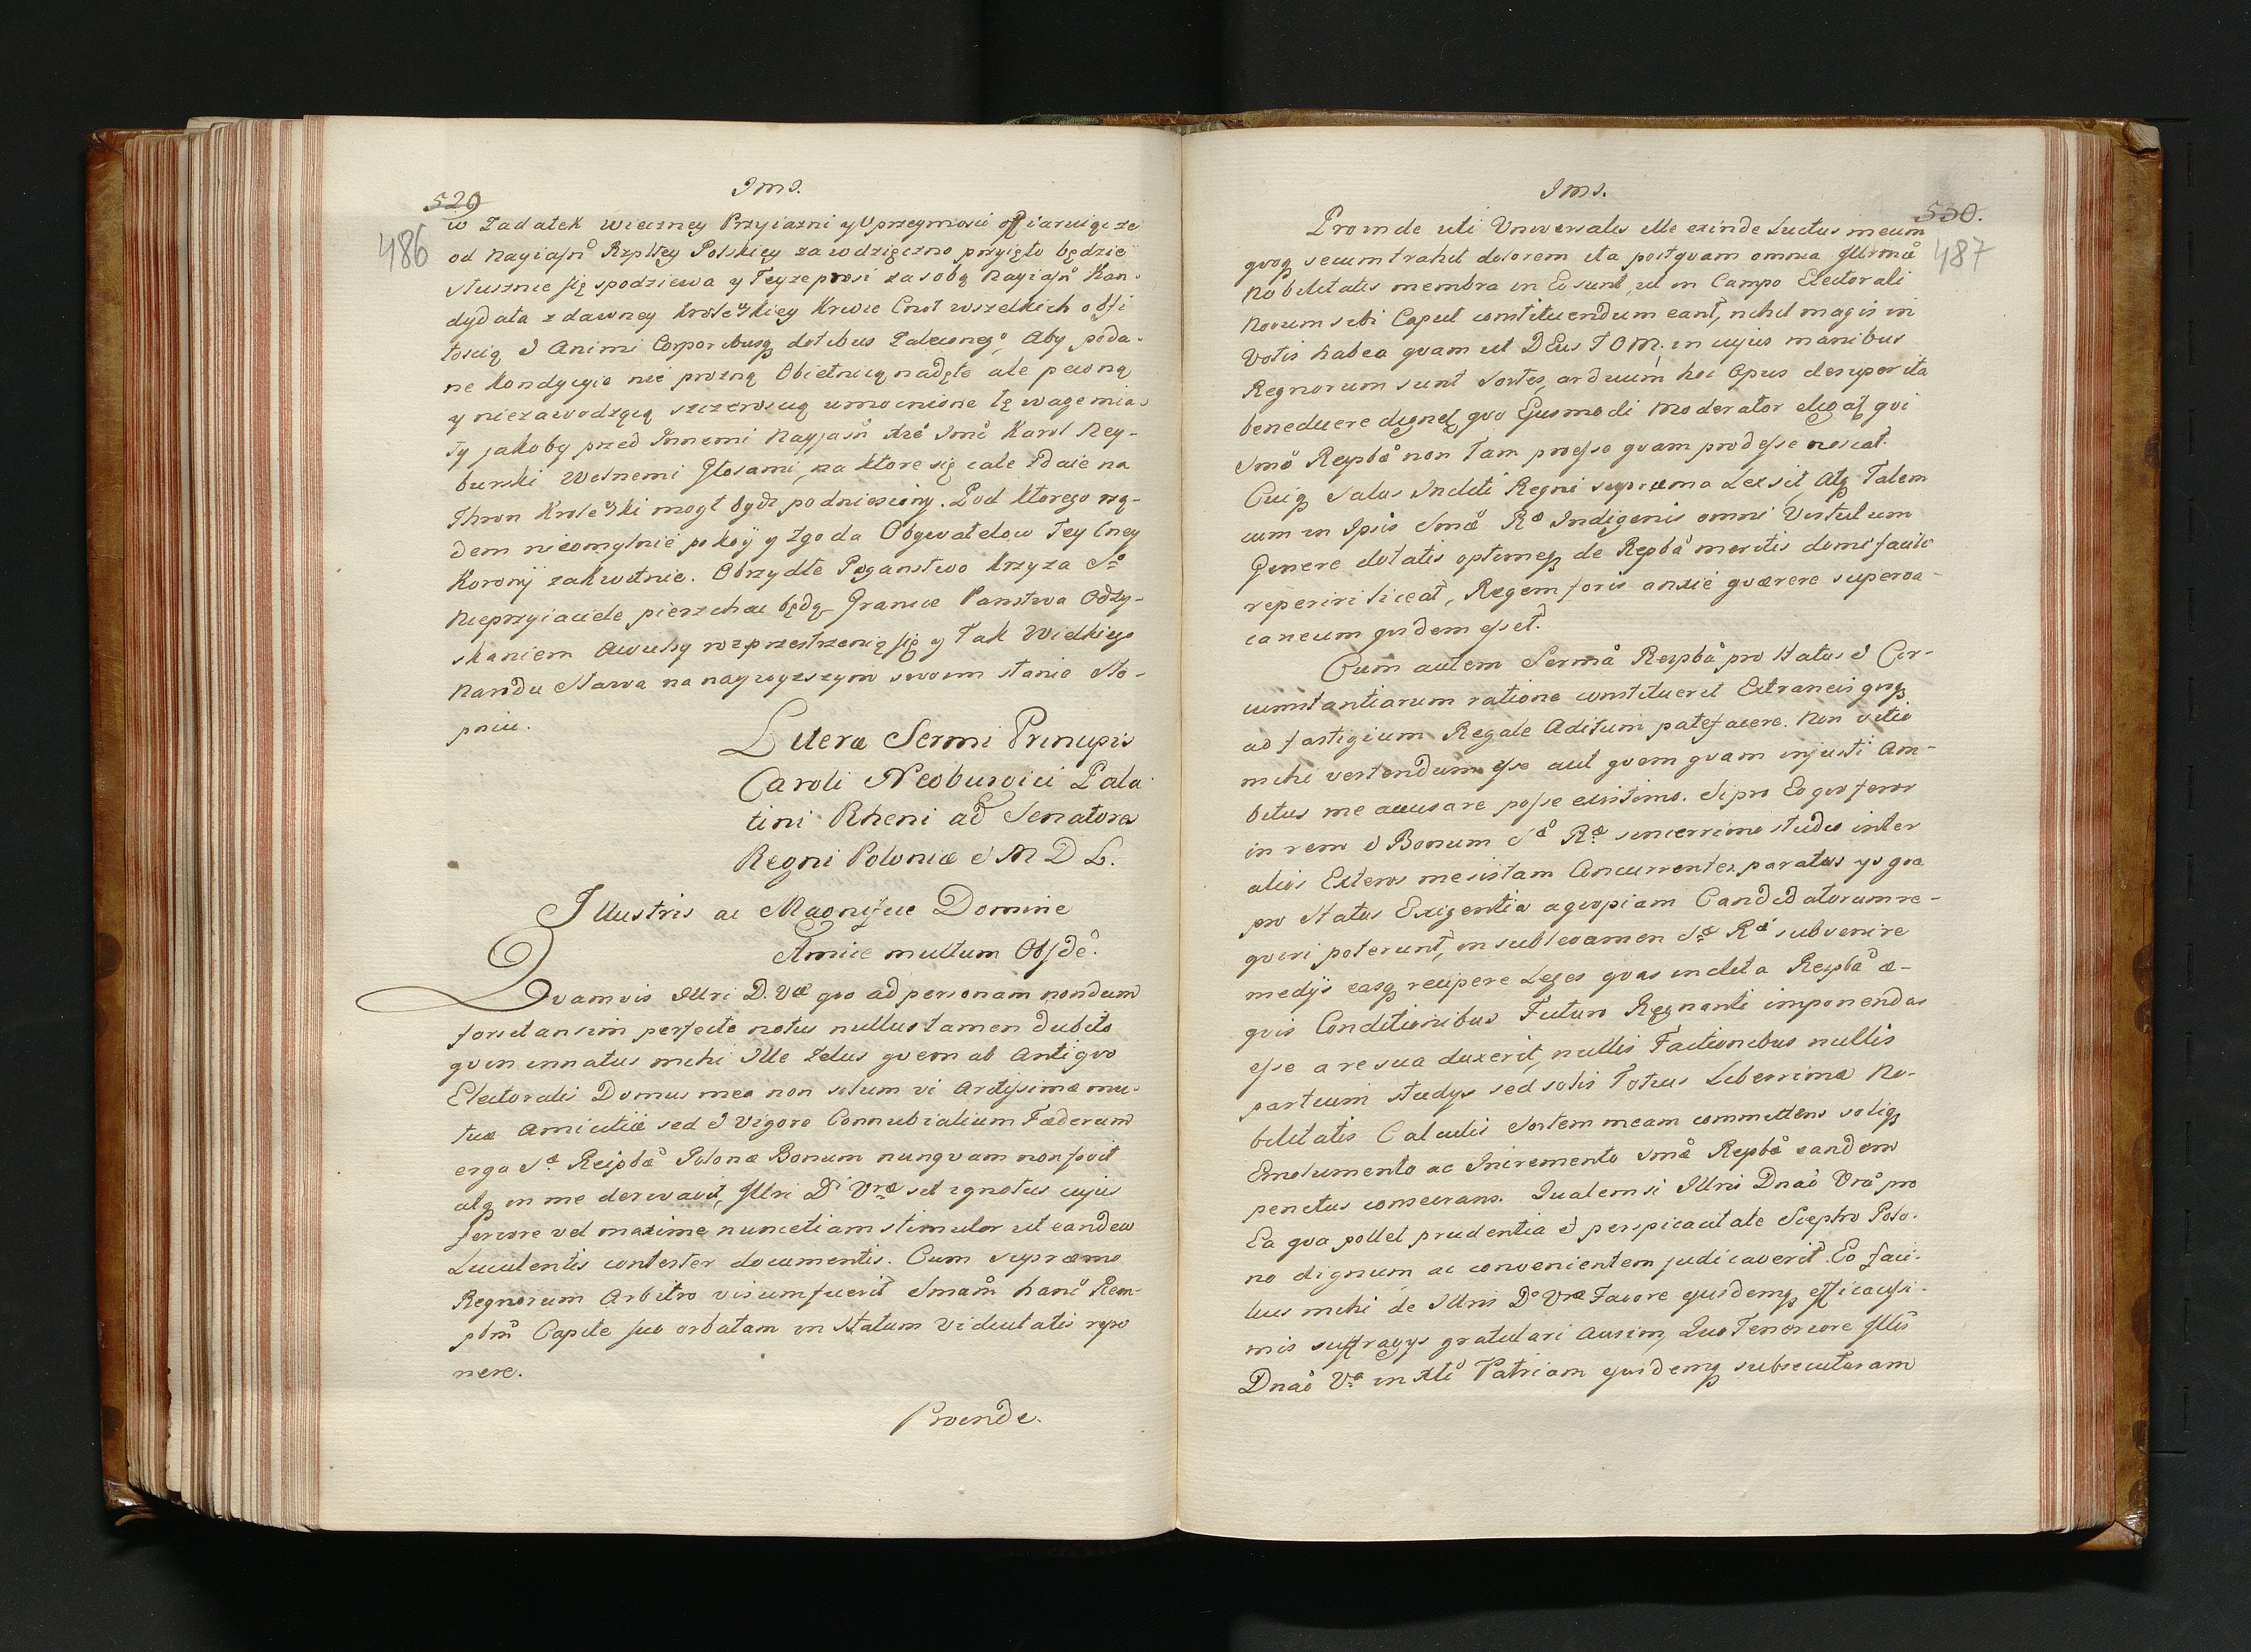 529
486
Jms.
w Zadatek wieczney Przyiazni y Uprzeymosci offiaruiące
od Nayiasń Rzpltey Polskiey zawdzięczno przyięto będzie
słusznie się spodziewa y Teyze prosi za sobą Nayiasń Kan-
dydata z dawney krolewskiey Krwie Cnot wszelkich obfi
toscią & Animi Corporibusq dotibus Zaleconego, Aby poda-
ne kondycyie nie prozną Obietnicą nadęte ale pewną
y niezawodzącą szczeroscią umocnione tę wagę mia-
ły jakoby przed Innemi Nayjasń Xże Jmć Karol Ney-
burski Wolnemi Głosami, na ktore się cale zdaie na
Thron Krolewski mogł bydz podniesiony. Pod ktorego rzą-
dem nieomylnie pokoy y zgoda Obywatelow Tey Cney
Korony zakwitnie. Obrzydłe Poganstwo Krzyza So
Nieprzyiaciele pierzchac będą, Granice Panstwa Odzy-
skaniem Awulsy rozprzestrzenią się y Tak Wielkiego
Narodu Sława na naywyzszym swoim stanie sto-
pniu.
Literæ Sermi Principis
Caroli Neoburgici Pala
tini Rheni ad Senatores
Regni Poloniæ & M D L.
Illustris ac Magnifice Domine
Amice multum Obsde.
Quamvis Illri D. Væ quo ad personam nondum
forsitan sim perfecte notus nullus tamen dubito
quin innatus mihi Ille Zelus quem ab Antiquo
Electoralis Domus mea non solum vi Arctissimæ mu-
tuæ Amicitiæ sed & Vigore Connubialium Fæderum
erga Sæ Reipbæ Polonæ Bonum nunquam non fovit
atq in me derivavit, Illri Di Vræ sit ignotus cujus
fervore vel maxime nunc etiam stimulor ut eandem
Luculentis contester documentis. Cum supræmo
Regnorum Arbitro visum fuerit Smam hanc Rem-
pbm Capite suo orbatam in Statum Viduitatis repo
nere.
Proinde.
Jms.
530.
487
Proinde uti Universalis ille exinde Luctus meum
quoq secum trahit dolorem ita postquam omnia Illrmæ
Nobilitatis membra in Eo sunt, ut in Campo Electorali
Novum sibi Caput constituendum eant, nihil magis in
Votis habeo quam ut DEus TOM. in cujus manibus
Regnorum sunt Sortes, arduum hoc Opus desuper ita
benedicere dignet quo Ejusmodi Moderator eligat qui
Smæ Reipbæ non Tam præesse quam prodesse nosceat.
Cuiq Salus Incliti Regni suprema Lex sit, Atq Talem
cum in Ipsis Smæ Ræ Indigenis omni Virtutum
Genere dotatis optimeq de Repba meritis domi facile
reperiri liceat, Regem foris anxie quærere superva-
caneum quidem esset.
Cum autem Sermæ Reipbæ pro Status & Cir-
cumstantiarum ratione constituerit Extraneis quoq
ad fastigium Regale Aditum patefacere. Non vitio
mihi vertendum esse aut quem quam injusti Am-
bitus me accusare posse existimo. Si pro Eo quo feror
in rem & Bonum Sæ Ræ sincerrimo studio inter
alios Exteros me sistam Concurrentes paratus ys qua
pro Status Exigentia a quopiam Candidatorum re-
quiri poterunt, in sublevamen Sæ Ræ subvenire
medijs easq recipere Leges quas inclita Reipba æ-
quis Conditionibus Futuro Regnanti imponendas
esse a re sua duxerit, nullis Factionibus nullis
partium studys sed solis Totius Liberrimæ No-
bilitatis Calculis Sortem meam committens soliq
Emolumento ac Incremento Smæ Reipbæ eandem
penitus consecrans. Qualem si Illris Dnao Vra pro
Ea qua pollet prudentia & perspicacitate Sceptro Polo-
no dignum ac convenientem judicaverit. Eo faci-
lius mihi de Illris Do Væ Favore ejusdemq efficacissi-
mis suffragys gratulari Ausim, Quo Teneriore Illis
Dnao Væ in Xti Patriam ejusdemq subsecuturam